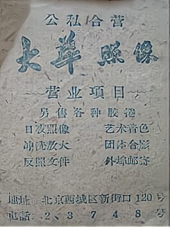 公私合营
大华照像
营业项目
另售各种胶卷
日夜照像 艺术着色
冲洗放大 团体合影
反照文件 外埠邮寄
地址:北京西城区新街口120号
电话:2、3748号